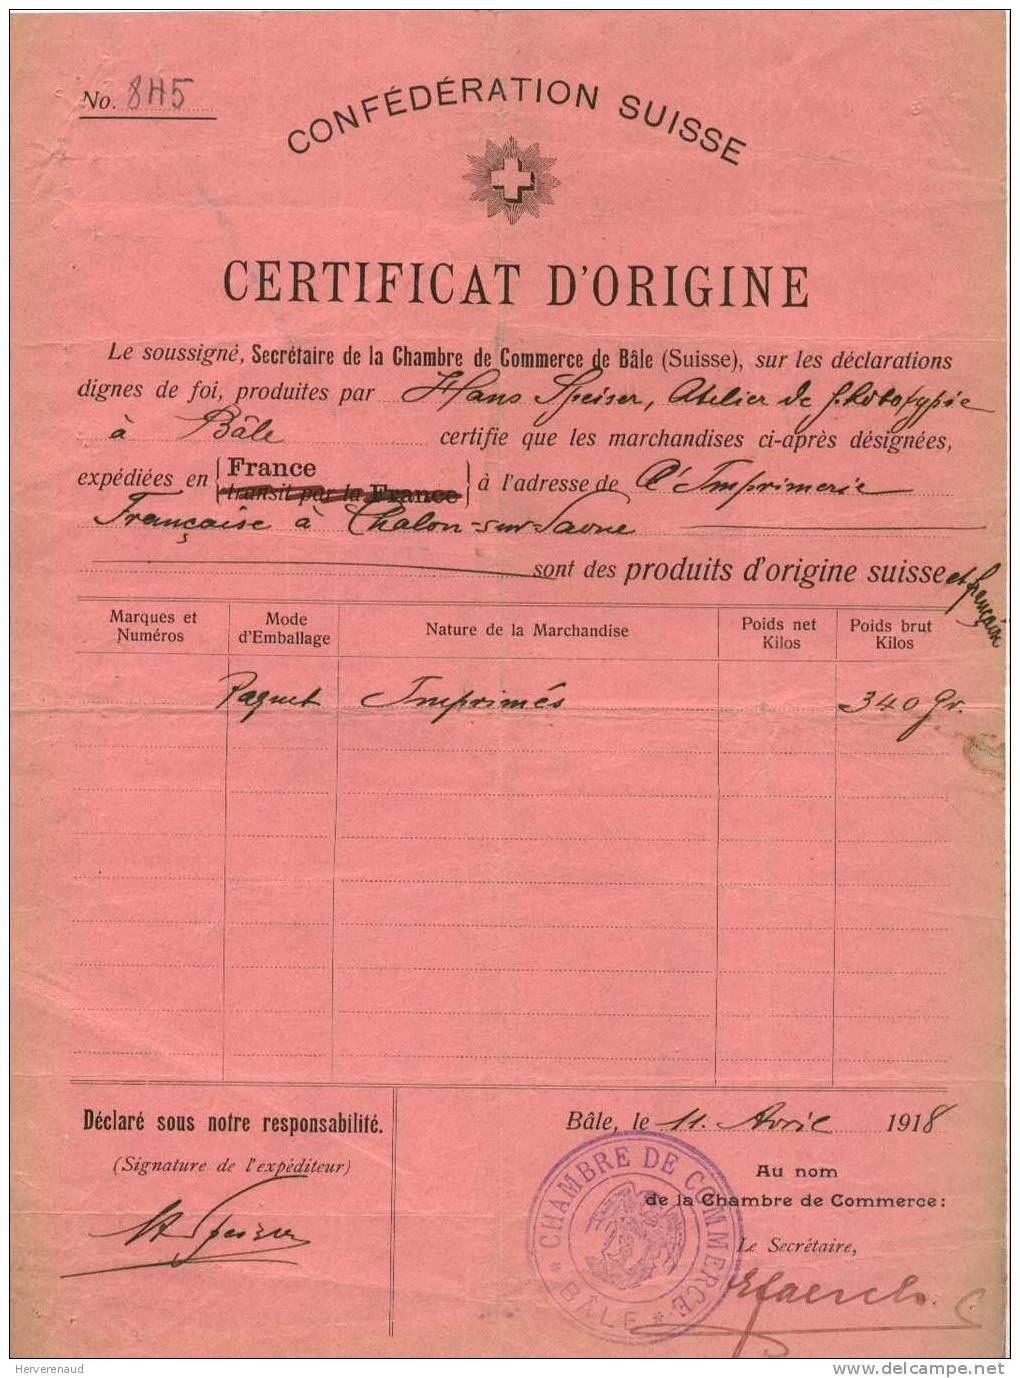 No. 8H5
CONFÉDÉRATION SUISSE
CERTIFICAT D'ORIGINE
Le soussigné, Secrétaire de la Chambre de Commerce de Bâle (Suisse), sur les déclarations
dignes de foi, produites par Hans Speiser, Atelier de phototypie
à Bâle certifie que les marchandises ci-après désignées,
expédiées en { France } à l'adresse de l'Imprimerie
transit par la France
Française à Chalon-sur-Saone
sont des produits d'origine suisse et français
Marques et Numéros
Mode d'Emballage
Nature de la Marchandise
Poids net Kilos
Poids brut Kilos
Paquet Imprimés 340 gr.
Déclaré sous notre responsabilité.
(Signature de l'expéditeur)
H Speiser
Bâle, le 11. Avril 1918
Au nom
de la Chambre de Commerce:
Le Secrétaire,
CHAMBRE DE COMMERCE
* BÂLE *
Herverenaud
delcampe.net